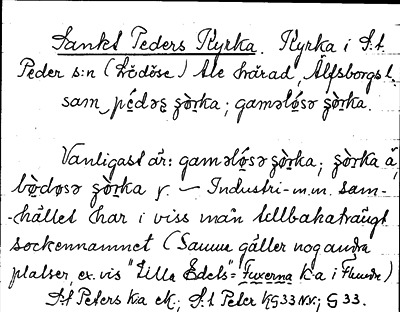 Sankt Peders Kyrka. Kyrka i S:t
Peder s:n (Lödöse) Ale härad, Älfsborgs l.
sam
Vanligast är: gaməlö́sə ʒò̤rka; ʒò̤rka å
bò̤dəsə ʒò̤rka γ. — Industri- m.m. sam-
-hället har i viss mån tillbakaträngt
sockennamnet (Samma gäller nog andra
platser, ex. vis "Lilla Edets" = Fuxerna k:a i Flundre)
S:t Peters k:a ek; S:t Peter KG33 NV; G 33.